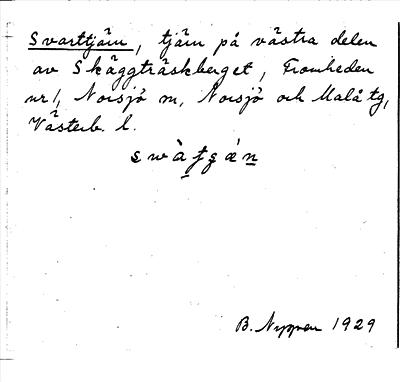 Svarttjärn, tjärn på västra delen
av Skäggträskberget, Fromheden
nr 1, Norsjö sn, Norsjö och Malå tg,
Västerb. l.
B. Nygren 1929